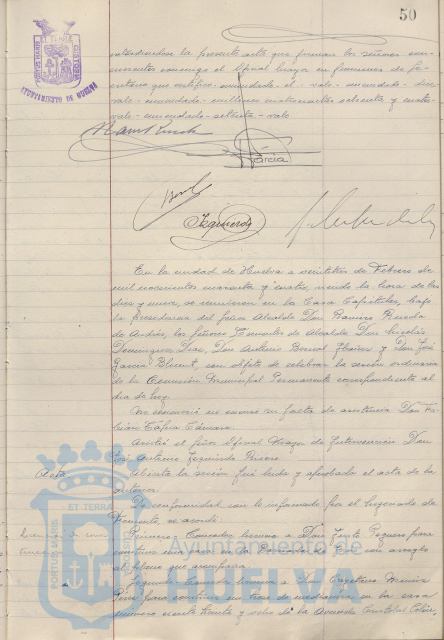 50
extendiendose la presente acta que firman los señores con-
currentes conmigo el Oficial mayor en funciones de Se-
cretario que certifico.- enmendado - el - vale - enmendado - die-
vale - enmendado - millones cuatrocientos ochenta y cuatro-
vale - enmendado - setenta - vale
García
Izquierdo
En la ciudad de Huelva a veintitres de Febrero de
mil novecientos cuarenta y cuatro, siendo la hora de las
diez y nueve, se reunieron en la Casa Capitular, bajo
la presidencia del Señor Alcalde Don Ramiro Rueda
de Andrés, los Señores Tenientes de Alcalde Don Nicolás
Dominguez Diaz, Don Antonio Bernal Ibañez y Don José
García Blunt, con objeto de celebrar la sesión ordinaria
de la Comisión Municipal Permanente correspondiente al
dia de hoy.
No concurrió ni excusó su falta de asistencia Don Fa-
bian Tapia Cámara.
Asistió el Señor Oficial Mayor de Intervención Don
José Antonio Izquierdo Piñero.
Acta
Abierta la sesión fué leida y aprobada el acta de la
anterior.
De conformidad con lo informado por el Negociado de
Fomento, se acordó:
Primero: Conceder licencia a Don Justo
para
construir una
con arreglo
al plano que acompaña.
Segundo: Conceder licencia a Don Cayetano
para construir un trozo de medianeria en la casa
número ciento treinta y ocho de la Avenida Cristobal Colón,
ET TERRA
PORTUS MARIS
CUSTODIA
Ayuntamiento de
HUELVA